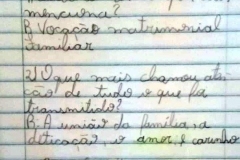 menciona?
R Vocação matrimonial
familiar
2) O que mais chamou aten
ção de tudo o que foi
transmitido?
R: A união da família, a
dedicação, o amor e carinho